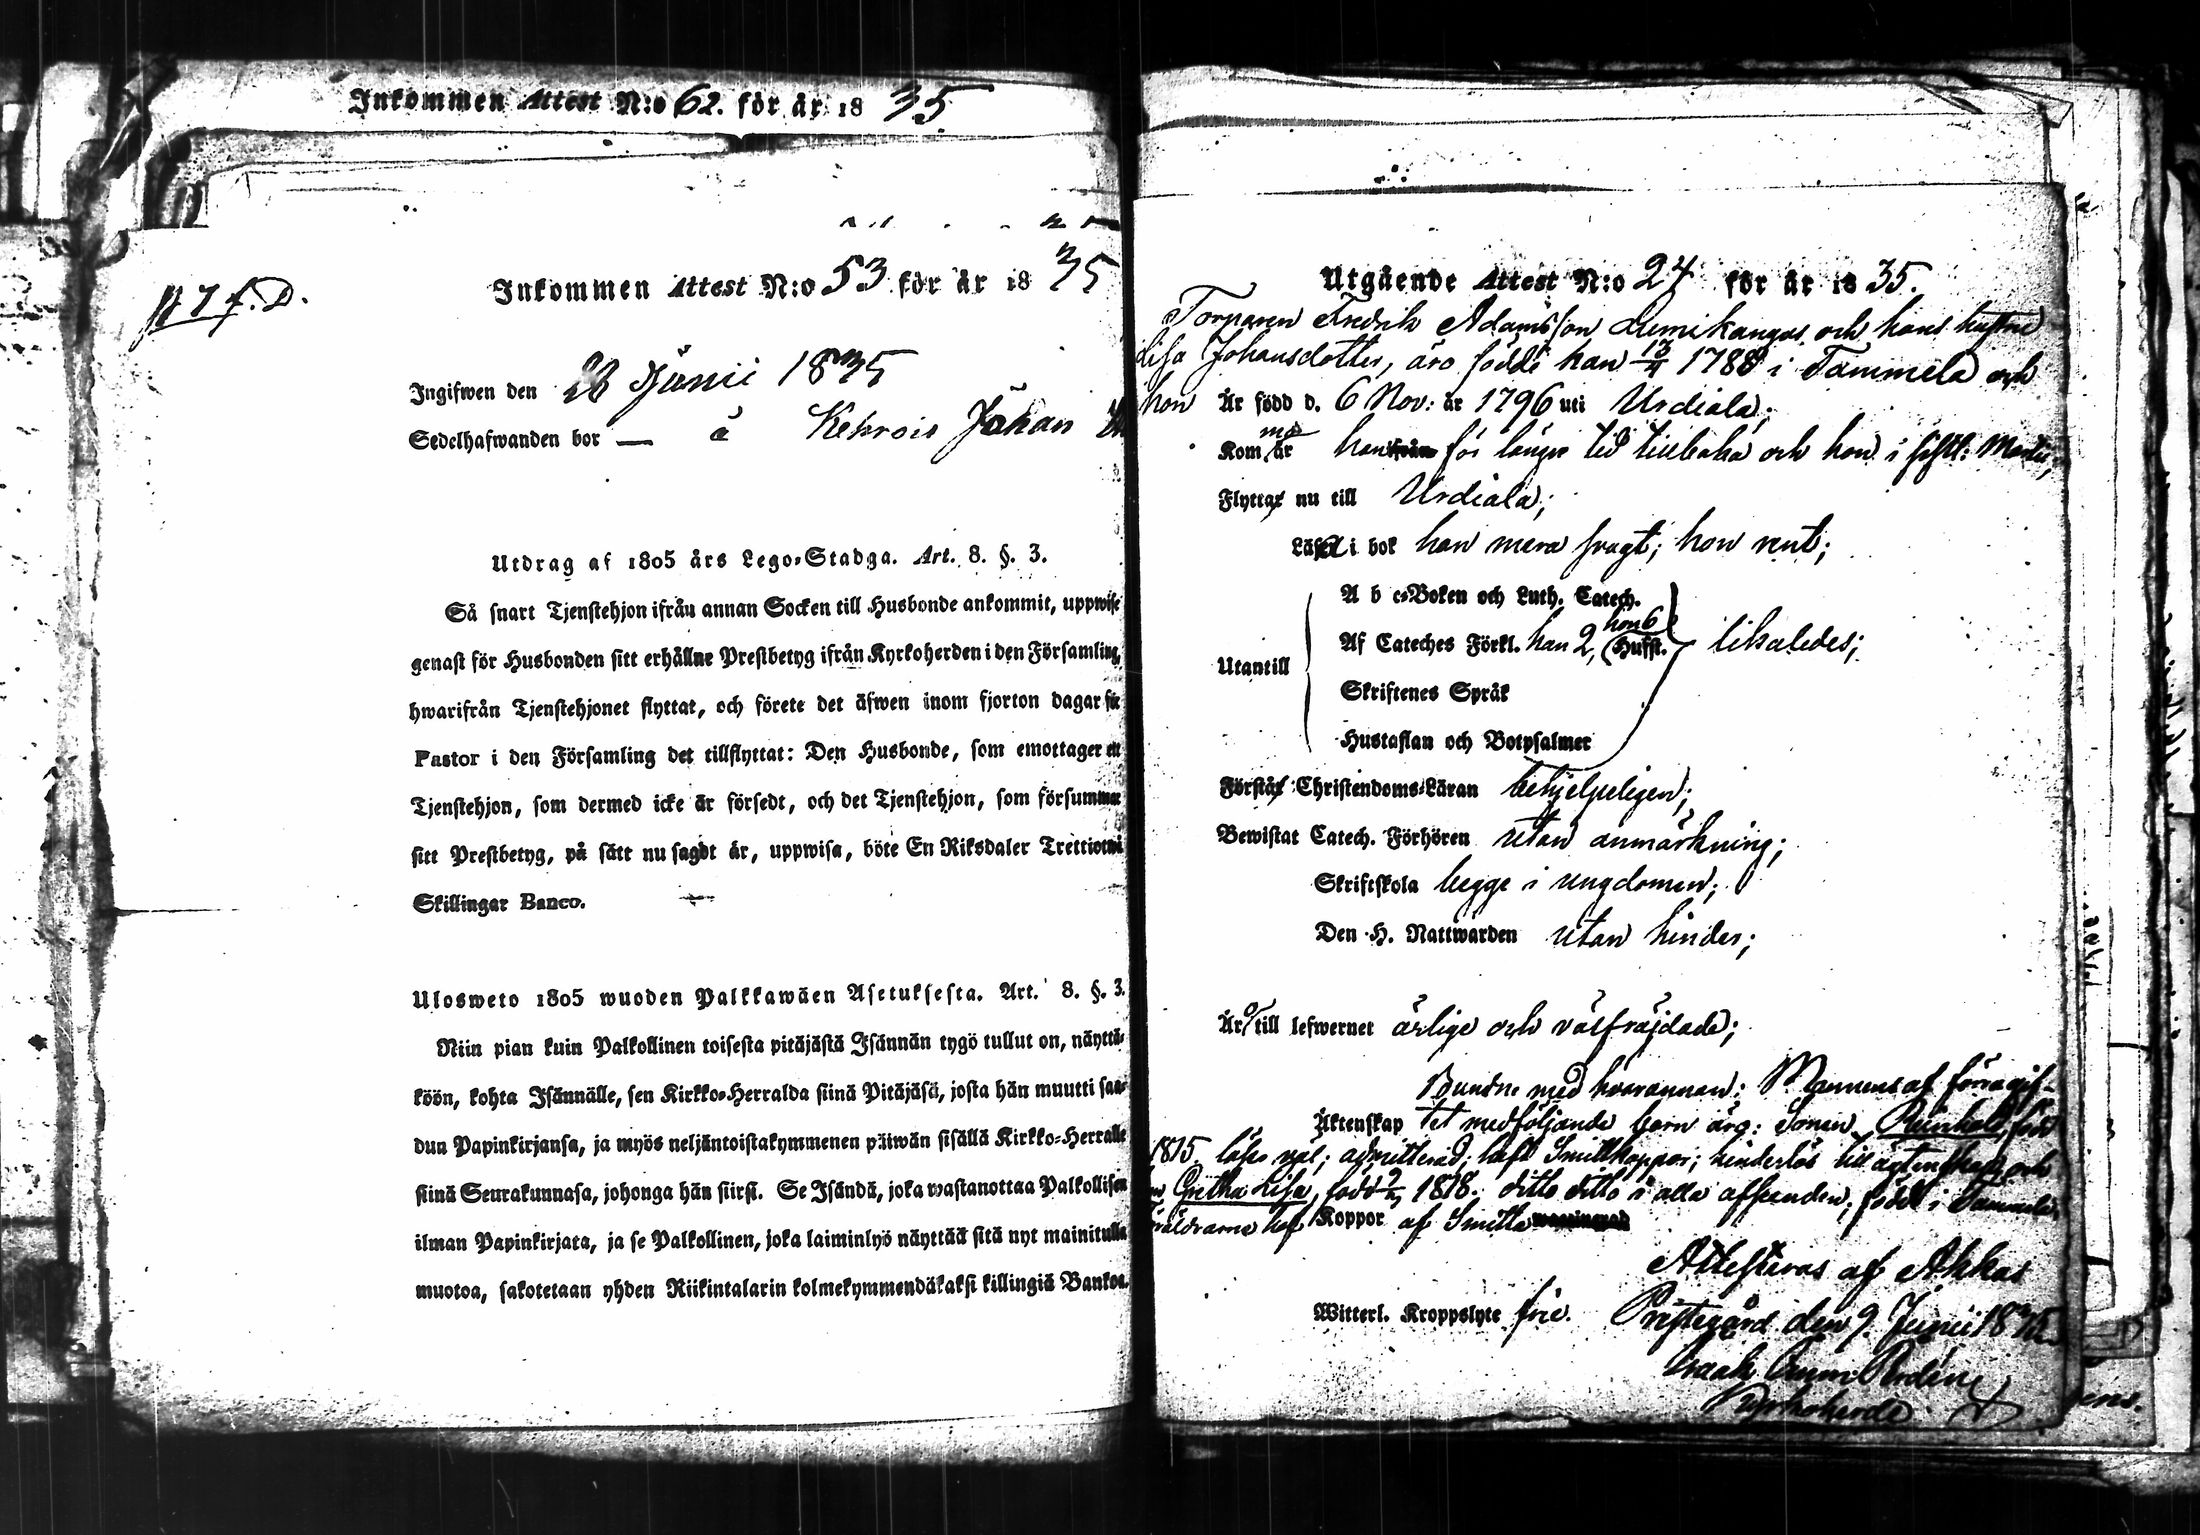 Inkommen Attest N:o 62. för år 1835
Inkommen Attest N:o 53 för år 1835
Ingifwen den 28 Junii 1835
Sedelhafwanden bor — å Kehrois Johan
Utdrag af 1805 års Lego-Stadga. Art. 8. §. 3.
Så snart Tjenstehjon ifrån annan Socken till Husbonde ankommit, uppwise
genast för Husbonden sitt erhållne Prestbetyg ifrån Kyrkoherden i den Församling,
hwarifrån Tjenstehjonet flyttat, och förete det äfwen inom fjorton dagar för
Pastor i den Församling det tillflyttat: Den Husbonde, som emottager ett
Tjenstehjon, som dermed icke är försedt, och det Tjenstehjon, som försummar
sitt Prestbetyg, på sätt nu sagdt är, uppwisa, böte En Riksdaler Trettiotwå
Skillingar Banco.
Ulosweto 1805 wuoden Palkkawäen Asetuksesta. Art. 8. §. 3.
Niin pian kuin Palkollinen toisesta pitäjästä Isännän tygö tullut on, näyttä-
köön, kohta Isännälle, sen Kirkko-Herralda siinä Pitäjäsä, josta hän muutti saa-
dun Papinkirjansa, ja myös neljäntoistakymmenen päiwän sisällä Kirkko-Herralle
siinä Seurakunnasa, johonga hän siirsi. Se Isändä, joka wastanottaa Palkollisen
ilman Papinkirjata, ja se Palkollinen, joka laiminlyö näyttää sitä nyt mainitulla
muotoa, sakotetaan yhden Riikintalarin kolmekymmendäkaksi killingiä Bankoa.
Utgående Attest N:o 24 för år 1835.
Torparen Fredrik Adamsson Lumikangas och hans hustru
Lisa Johansdotter, äro födde han 13/4 1788 i Tammela och
hon Är född d. 6 Nov: år 1796 uti Urdiala;
Kommo han för längre tid tillbaka och hon i sistl: Martii,
Flytta nu till Urdiala;
Läsa i bok han mera svagt; hon rent;
A b c-Boken och Luth. Catech.
Utantill Af Cateches Förkl. han 2, hon 6 (Hufst. likaledes;
Skriftenes Språk
Hustaflan och Botpsalmer
Förstå Christendoms-Läran behjelpeligen;
Bewistat Catech. Förhören utan anmärkning;
Skriftskola begge i ungdomen;
Den H. Nattwarden utan hinder;
Äro till lefwernet ärlige och välfräjdade;
Bundne med hvarannan; Mannens af förra gif-
Äktenskap tet medföljande barn äro: Sonen Reinhold född
1815 läser väl; admitterad; haft Smittkoppor; hinderlös till ägtenskap och
Gretha Lisa, född 2/ 1818. ditto ditto i alla afseenden; födde i Tammela,
Föräldrarne haft Koppor af Smitta
Attesteras af Akkas
Witterl. Kroppslyte frie. Prestegård den 9. Junii 1835
Kyrkoherde